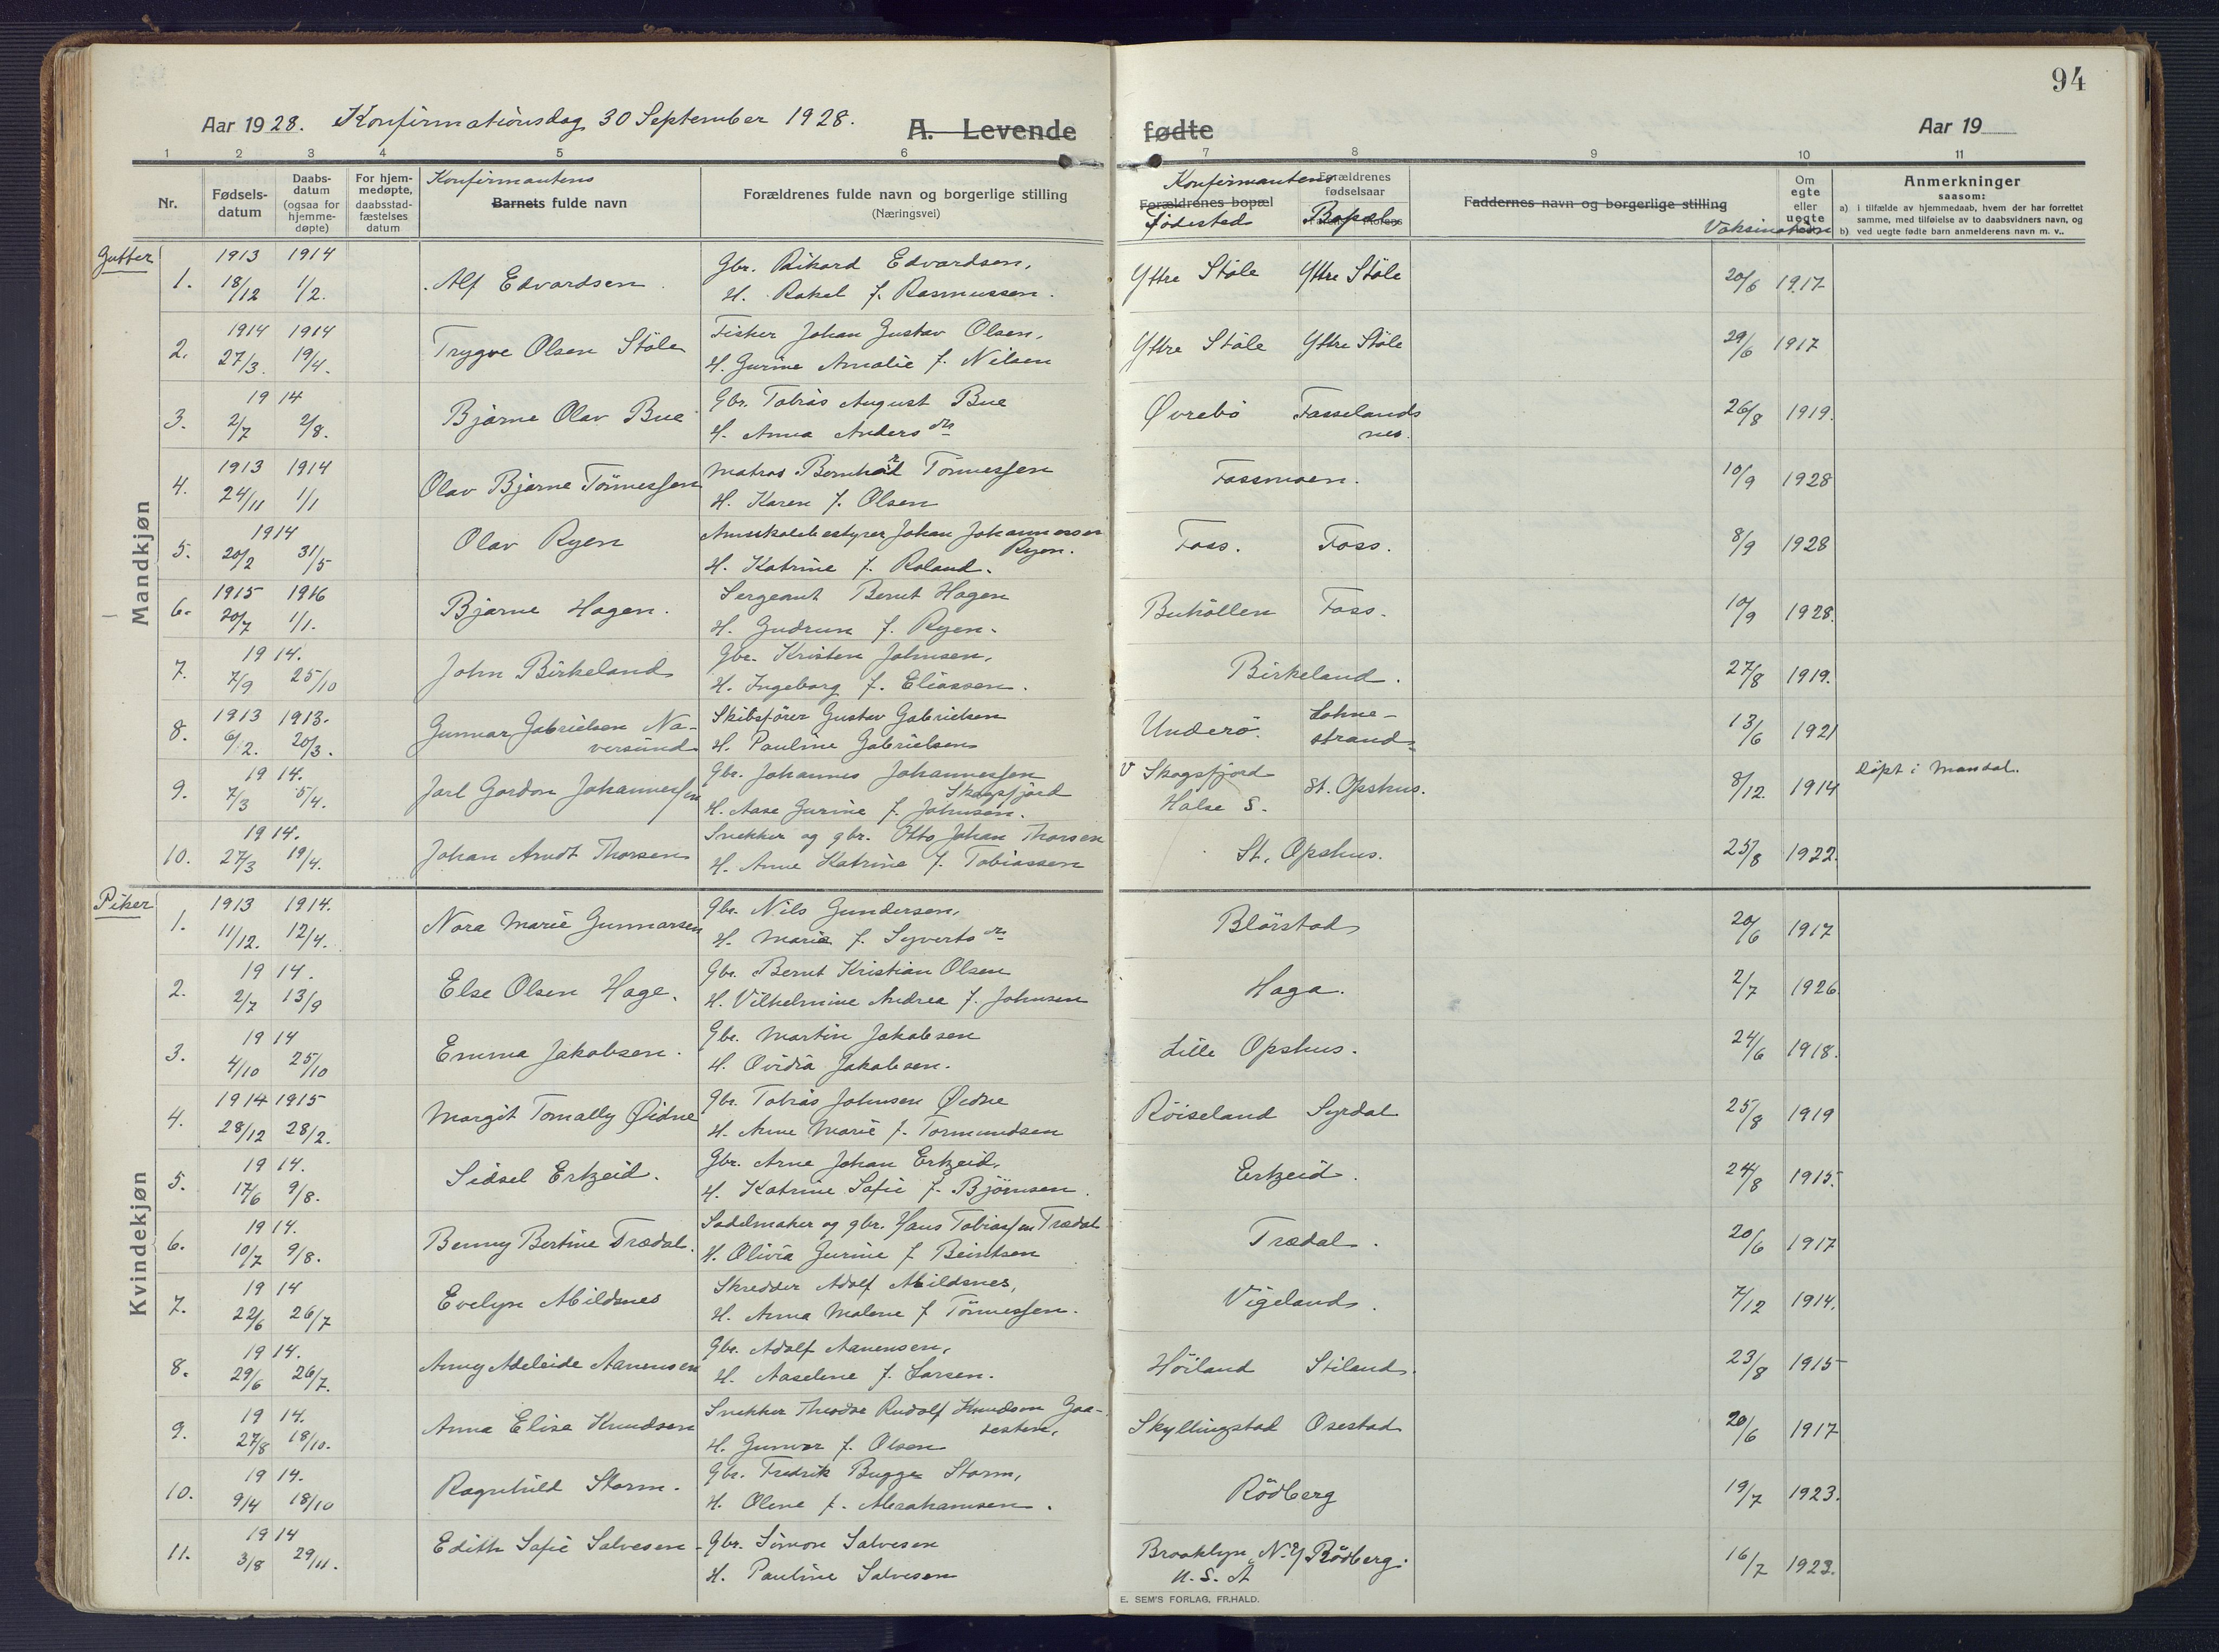 94
Aar 1928. Konfirmationsdag 30 September 1928.
A. Levende fødte
Aar 19
1 2 3 4 5 6 7 8 9 10 11
Nr.
Fødsels-
datum
Daabs-
datum
(ogsaa for
hjemme-
døpte)
For hjem-
medøpte,
daabsstad-
fæstelses
datum
Konfirmantens
Barnets fulde navn
Forældrenes fulde navn og borgerlige stilling
(Næringsvei)
Konfirmantens
Forældrenes bopæl
Fødested
Forældrenes
fødselsaar
Bopæl
Faddernes navn og borgerlige stilling
Vaksination
Om
egte
eller
uegte
Anmerkninger
saasom:
a) i tilfælde av hjemmedaab, hvem der har forrettet
samme, med tilføielse av to daabsvidners navn, og
b) ved uegte fødte barn anmelderens navn m. v..
Gutter
Mandkjøn
1913 1914
1. 18/12 1/2. Alf Edvardsen. Gbr. Rikard Edvardsen,
H. Rakel f. Rasmussen.
Yttre Ståle Yttre Ståle 20/6 1917
1914 1914
2. 27/3. 19/4. Trygve Olsen Ståle Fisker Johan Gustav Olsen,
H. Gurine Amalie f. Nilsen
Yttre Ståle Yttre Ståle 29/6 1917
1914
3. 2/7 2/8. Bjarne Olav Bue Gbr. Tobias August Bue
H. Anna Anders dtr
Øvrebö Fasselands
nes. 26/8 1919.
1913 1914
4. 24/11 1/1 Olav Bjarne Tönnessen Matros Bernhard Tönnessen
H. Karen f. Olsen
Fossmoen. 10/9 1928
1914
5. 20/2 31/5 Olav Ryen Amtskolebestyrer Johan Johannessen
Ryen.
H. Katrine f. Roland.
Foss. Foss. 8/9 1928
1915 1916
6. 20/7 1/1. Bjarne Hagen. Sergeant Bernt Hagen
H. Gudrun f. Ryen.
Buhöllen Foss. 10/9 1928.
1914.
7. 7/9 25/10 John Birkeland Gbr. Kristen Johnsen,
H. Ingeborg f. Eliassen.
Birkeland. 27/8 1919.
1913 1913.
8. 6/2. 20/3. Gunnar Gabrielsen Na-
versund Skibsförer Gustav Gabrielsen
H. Pauline Gabrielsen
Underö. Lohne-
strand 13/6 1921
1914.
9. 7/3 5/4. Jarl Gordon Johannessen Gbr. Johannes Johannessen
Skogsfjord
H. Aase Gurine f. Johnsen.
V Skogsfjord
Halse S. St. Opshus. 8/12. 1914 Döpt i Mandal.
1914.
10. 27/3 19/4. Johan Arndt Thorsen Snekker og gbr. Otto Johan Thorsen
H. Anne Katrine f. Tobiassen
St. Opshus. 25/8 1922.
Piker
Kvindekjøn
1913 1914.
1. 11/12. 12/4. Nora Marie Gunnarsen Gbr. Nils Gundersen,
H. Maria f. Syverts dtr
Blörstad 20/6 1917
1914.
2. 2/7 13/9 Else Olsen Hage. Gbr. Bernt Kristian Olsen
H. Vilhelmine Andrea f. Johnsen
Haga. 2/7 1926.
1914
3. 4/10 25/10 Emma Jakobsen. Gbr. Martin Jakobsen
H. Ovidia Jakobsen.
Lille Opshus. 24/6 1918.
1914 1915
4. 28/12 28/2. Margit Tomally Øidne Gbr. Tobias Johnsen Øidne
H. Anne Marie f. Tormundsen
Röiseland Syrdal 25/8 1919
1914.
5. 17/6 9/8. Sidsel Erkzeid. Gbr. Arne Johan Erkzeid,
H. Katrine Sofie f. Björnsen.
Erkzeid. 24/8 1915.
1914.
6. 10/7 9/8. Benny Bertine Trædal. Sadelmaker og gbr. Hans Tobiassen Trædal
H. Olivia Gurine f Beintsen
Trædal. 20/6 1917
1914
7. 22/6 26/7 Evelyn Abildsnes Skredder Adolf Abildsnes,
H. Anna Malene f Tönnessen.
Vigeland. 7/12 1914.
1914.
8. 29/6 26/7. Anny Adeleide Aanensen Gbr. Adolf Aanensen,
H. Aaselene f. Larsen.
Höiland Stiland. 23/8 1915
1914.
9. 27/8 18/10. Anna Elise Knudsen Snekker Theodor Rudolf Knudsen Gaa-
sesten,
H. Gunvor f. Olsen
Skyllingstad Osestad 20/6 1917
1914.
10. 9/4 18/10 Ragnhild Storm. Gbr. Fredrik Bugge Storm,
H. Olene f. Abrahamsen.
Rödberg 19/7 1923.
1914
11. 3/8 29/11. Edith Sofie Salvesen Gbr. Simon Salvesen
H. Pauline Salvesen
Brooklyn N.Y Rödberg.
U.S.A 16/7 1923.
E. SEM'S FORLAG, FR.HALD.